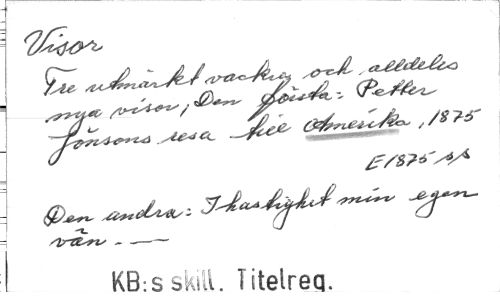 Visor
Tre utmärkt vackra och alldeles
nya visor, Den första: Petter
Jönsons resa till Amerika, 1875
E 1875 ss
Den andra: I hastighet min egen
vän. —
KB:s skill. Titelreg.